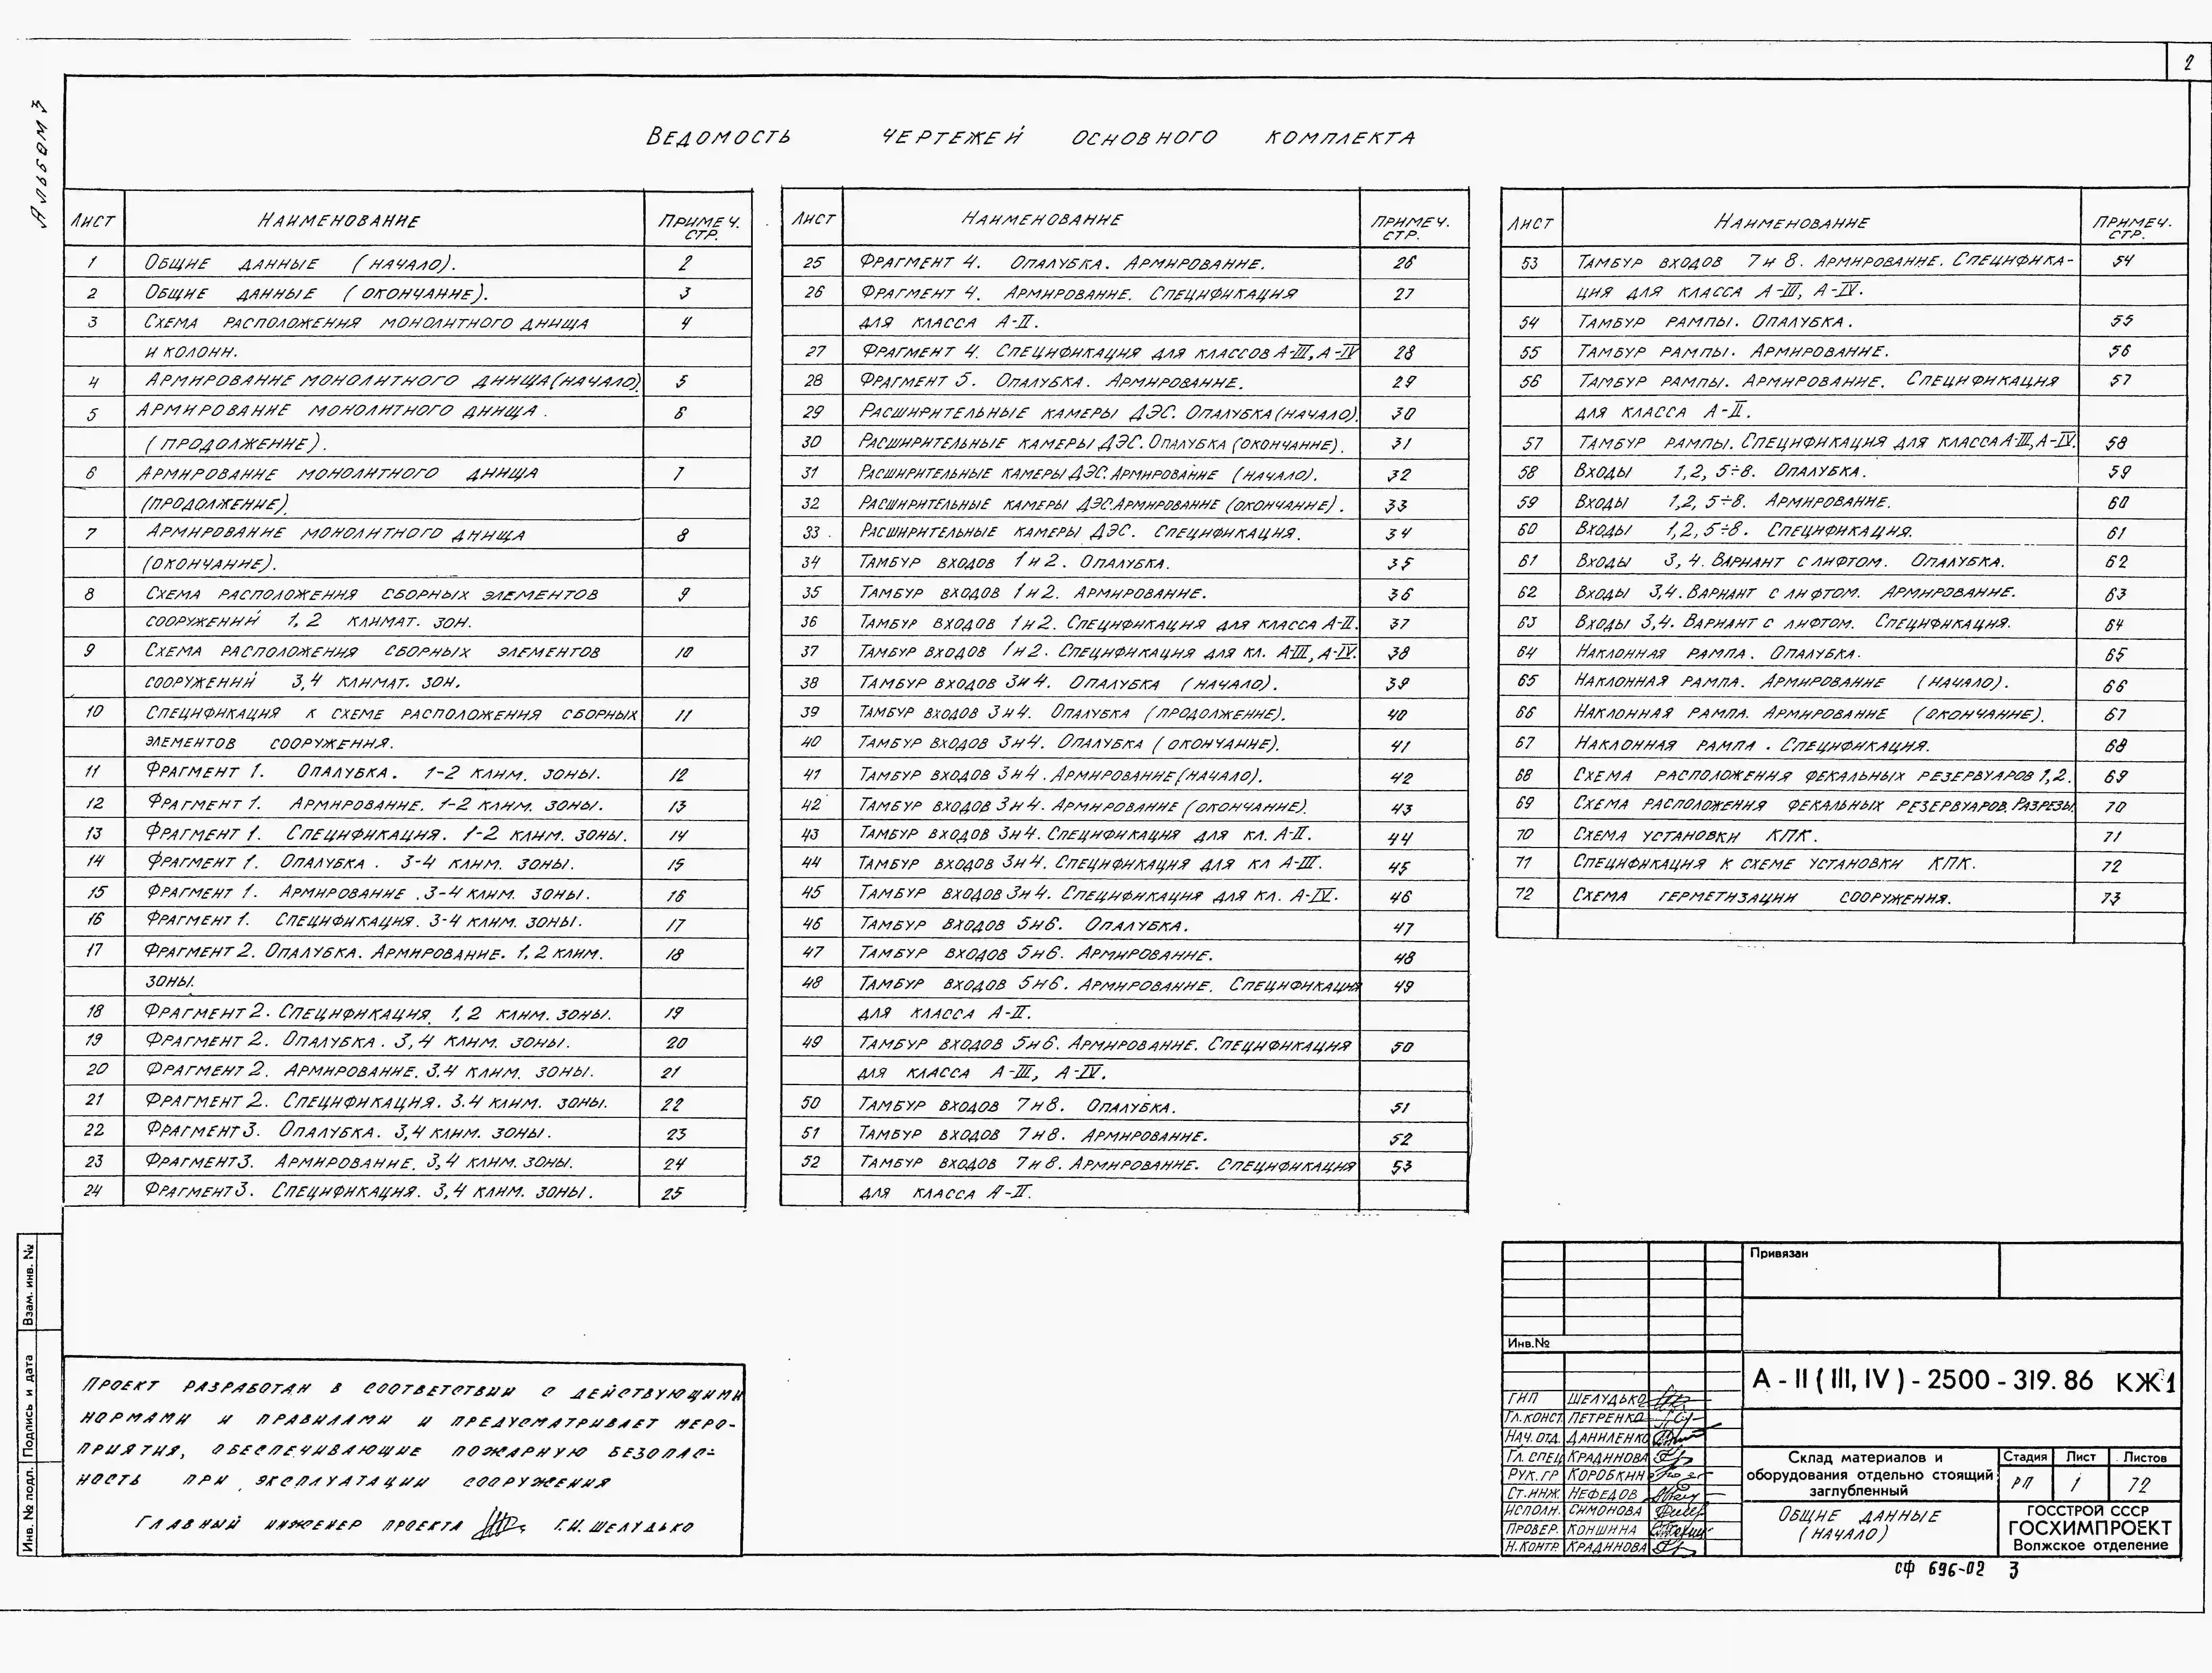 2
Альбом 3
Ведомость чертежей основного комплекта
Лист Наименование Примеч. стр.
1 Общие данные (начало). 2
2 Общие данные (окончание). 3
3 Схема расположения монолитного днища 4
и колонн.
4 Армирование монолитного днища (начало). 5
5 Армирование монолитного днища. 6
(продолжение).
6 Армирование монолитного днища 7
(продолжение).
7 Армирование монолитного днища 8
(окончание).
8 Схема расположения сборных элементов 9
сооружений 1, 2 климат. зон.
9 Схема расположения сборных элементов 10
сооружений 3,4 климат. зон.
10 Спецификация к схеме расположения сборных 11
элементов сооружения.
11 Фрагмент 1. Опалубка. 1-2 клим. зоны. 12
12 Фрагмент 1. Армирование. 1-2 клим. зоны. 13
13 Фрагмент 1. Спецификация. 1-2 клим. зоны. 14
14 Фрагмент 1. Опалубка. 3-4 клим. зоны. 15
15 Фрагмент 1. Армирование. 3-4 клим. зоны. 16
16 Фрагмент 1. Спецификация. 3-4 клим. зоны. 17
17 Фрагмент 2. Опалубка. Армирование. 1,2 клим. 18
зоны.
18 Фрагмент 2. Спецификация. 1,2 клим. зоны. 19
19 Фрагмент 2. Опалубка. 3,4 клим. зоны. 20
20 Фрагмент 2. Армирование. 3.4 клим. зоны. 21
21 Фрагмент 2. Спецификация. 3.4 клим. зоны. 22
22 Фрагмент 3. Опалубка. 3,4 клим. зоны. 23
23 Фрагмент 3. Армирование. 3,4 клим. зоны. 24
24 Фрагмент 3. Спецификация. 3,4 клим. зоны. 25
Лист Наименование Примеч. стр.
25 Фрагмент 4. Опалубка. Армирование. 26
26 Фрагмент 4. Армирование. Спецификация 27
для класса А-II.
27 Фрагмент 4. Спецификация для классов А-III, А-IV 28
28 Фрагмент 5. Опалубка. Армирование. 29
29 Расширительные камеры ДЭС. Опалубка (начало). 30
30 Расширительные камеры ДЭС. Опалубка (окончание). 31
31 Расширительные камеры ДЭС. Армирование (начало). 32
32 Расширительные камеры ДЭС. Армирование (окончание). 33
33 Расширительные камеры ДЭС. Спецификация. 34
34 Тамбур входов 1 и 2. Опалубка. 35
35 Тамбур входов 1 и 2. Армирование. 36
36 Тамбур входов 1 и 2. Спецификация для класса А-II. 37
37 Тамбур входов 1 и 2. Спецификация для кл. А-III, А-IV. 38
38 Тамбур входов 3 и 4. Опалубка (начало). 39
39 Тамбур входов 3 и 4. Опалубка (продолжение). 40
40 Тамбур входов 3 и 4. Опалубка (окончание). 41
41 Тамбур входов 3 и 4. Армирование (начало). 42
42 Тамбур входов 3 и 4. Армирование (окончание). 43
43 Тамбур входов 3 и 4. Спецификация для кл. А-II. 44
44 Тамбур входов 3 и 4. Спецификация для кл А-III. 45
45 Тамбур входов 3 и 4. Спецификация для кл. А-IV. 46
46 Тамбур входов 5 и 6. Опалубка. 47
47 Тамбур входов 5 и 6. Армирование. 48
48 Тамбур входов 5 и 6. Армирование. Спецификация 49
для класса А-II.
49 Тамбур входов 5 и 6. Армирование. Спецификация 50
для класса А-III, А-IV.
50 Тамбур входов 7 и 8. Опалубка. 51
51 Тамбур входов 7 и 8. Армирование. 52
52 Тамбур входов 7 и 8. Армирование. Спецификация 53
для класса А-II.
Лист Наименование Примеч. стр.
53 Тамбур входов 7 и 8. Армирование. Специфика- 54
ция для класса А-III, А-IV.
54 Тамбур рампы. Опалубка. 55
55 Тамбур рампы. Армирование. 56
56 Тамбур рампы. Армирование. Спецификация 57
для класса А-II.
57 Тамбур рампы. Спецификация для класса А-III, А-IV. 58
58 Входы 1,2, 5÷8. Опалубка. 59
59 Входы 1,2, 5÷8. Армирование. 60
60 Входы 1,2, 5÷8. Спецификация. 61
61 Входы 3, 4. Вариант с лифтом. Опалубка. 62
62 Входы 3,4. Вариант с лифтом. Армирование. 63
63 Входы 3,4. Вариант с лифтом. Спецификация. 64
64 Наклонная рампа. Опалубка. 65
65 Наклонная рампа. Армирование (начало). 66
66 Наклонная рампа. Армирование (окончание). 67
67 Наклонная рампа. Спецификация. 68
68 Схема расположения фекальных резервуаров 1,2. 69
69 Схема расположения фекальных резервуаров. Разрезы 70
70 Схема установки КПК. 71
71 Спецификация к схеме установки КПК. 72
72 Схема герметизации сооружения. 73
Взам. инв. №
Подпись и дата
Инв. № подл.
Проект разработан в соответствии с действующими
нормами и правилами и предусматривает меро-
приятия, обеспечивающие пожарную безопас-
ность при эксплуатации сооружения
Главный инженер проекта Г.И. Шелудько
Привязан
Инв.№
А - II ( III, IV ) - 2500 - 319. 86 КЖ1
ГИП Шелудько
Гл. конст. Петренко
Нач. отд. Даниленко
Гл. спец. Крадинова
Рук. гр Коробкин
Ст. инж. Нефедов
Исполн. Симонова
Провер. Коншина
Н. контр. Крадинова
Склад материалов и
оборудования отдельно стоящий
заглубленный
Стадия Лист Листов
РП 1 72
Общие данные
(начало)
ГОССТРОЙ СССР
ГОСХИМПРОЕКТ
Волжское отделение
СФ 696-02 3